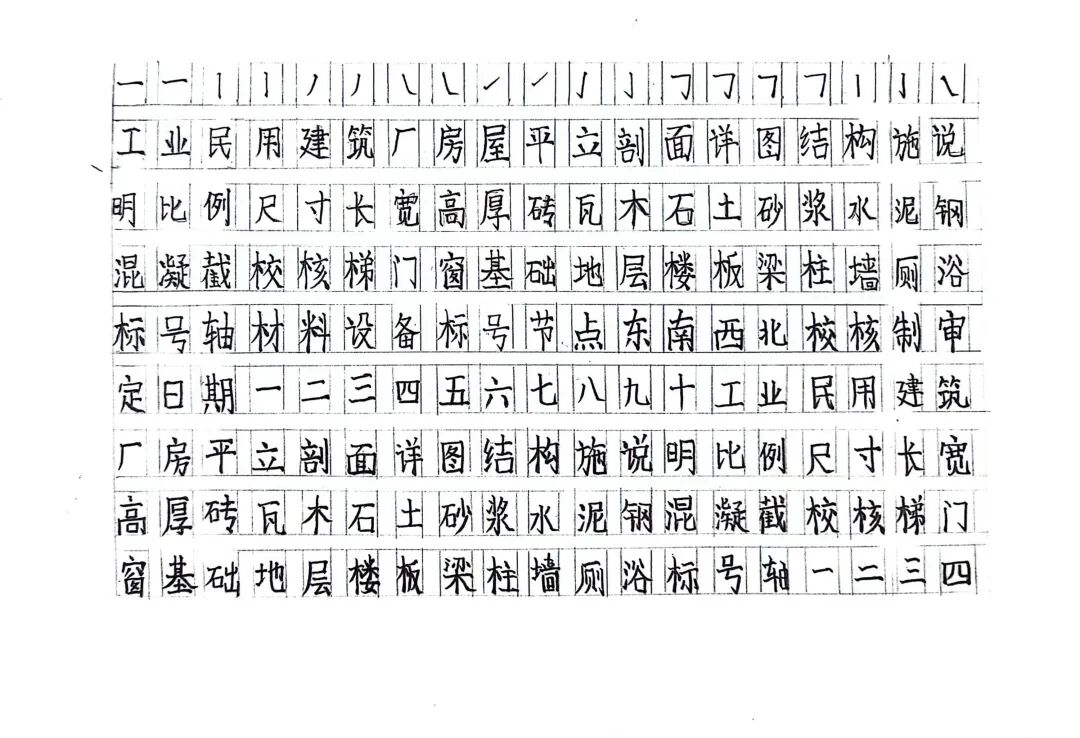 工业民用建筑厂房屋平立剖面详图结构施说
明比例尺寸长宽高厚砖瓦木石土砂浆水泥钢
混凝截校核梯门窗基础地层楼板梁柱墙厕浴
标号轴材料设备标号节点东南西北校核制审
定日期一二三四五六七八九十工业民用建筑
厂房平立剖面详图结构施说明比例尺寸长宽
高厚砖瓦木石土砂浆水泥钢混凝截校核梯门
窗基础地层楼板梁柱墙厕浴标号轴一二三四